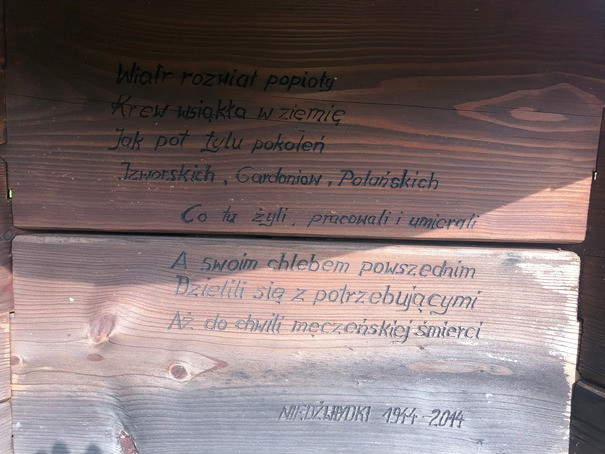 Wiatr rozwiał popioły
Krew wsiąkła w ziemię
Jak pot tylu pokoleń
Izworskich, Gardoniów, Polańskich
Co tu żyli, pracowali i umierali
A swoim chlebem powszednim
Dzielili się z potrzebującymi
Aż do chwili męczeńskiej śmierci
NIEDŹWIADKI 1944-2014